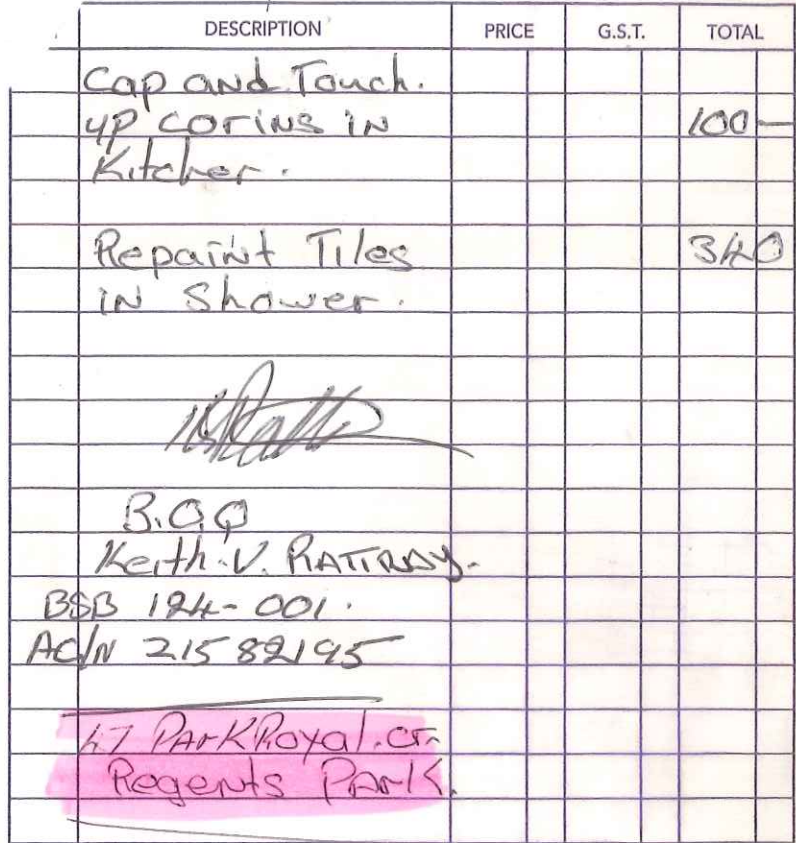 DESCRIPTION PRICE G.S.T. TOTAL
Cap and Touch.
up corins in 100-
Kitcher.
Repaint Tiles 340
in Shower.
B.O.Q
Keith.V. RATTRAY.
BSB 124-001.
AC/N 21582195
47 Park Royal.cr
Regents Park.